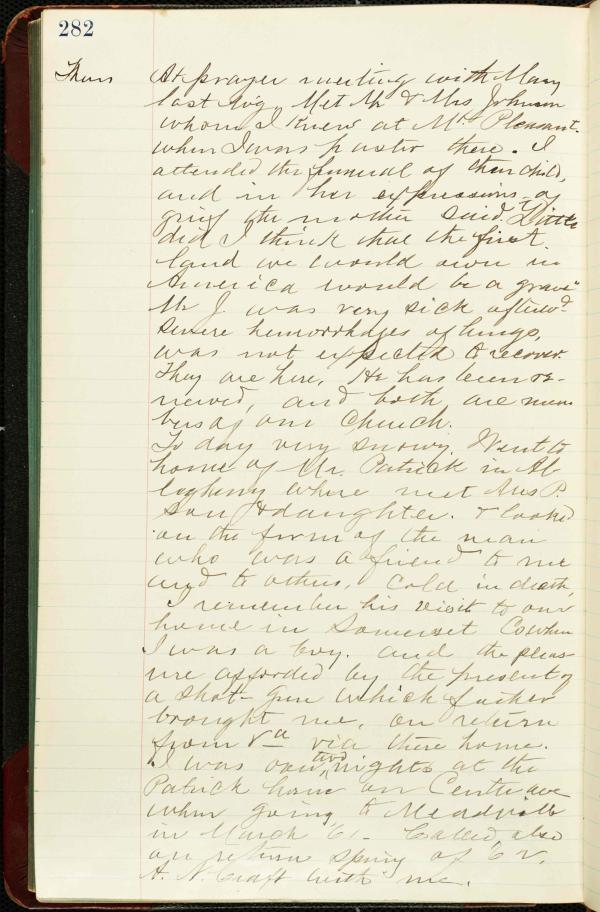 282
Thurs At prayer meeting with Mary
last Avg. Met Mr & Mrs Johnson
whom I knew at Mt Pleasant
when I was pastor there. I
attended the funeral of their child,
and in her expressions of
grief the mother said, "Little
did I think that the first
land we would own in
America would be a grave"
Mr J. was very sick afterwd
Severe hemorrhages of lungs,
was not expected to recover.
They are here. He has been re-
newed, and both are mem
bers of our Church.
To day very snowy. Went to
home of Mr. Patrick in Al
legheny where met Mrs P.
Son & daughter. & looked
on the form of the man
who was a friend to me
and to others. Cold in death,
I remember his visit to our
home in Somerset Co when
I was a boy. and the pleas-
ure afforded by the present of
a shot-gun which father
brought me, on return
from Va via there home.
I was over two nights at the
Patrick home on Centre ave
when going to Meadville
in March '61- Called also
on return Spring of '62.
A. N. Craft with me.